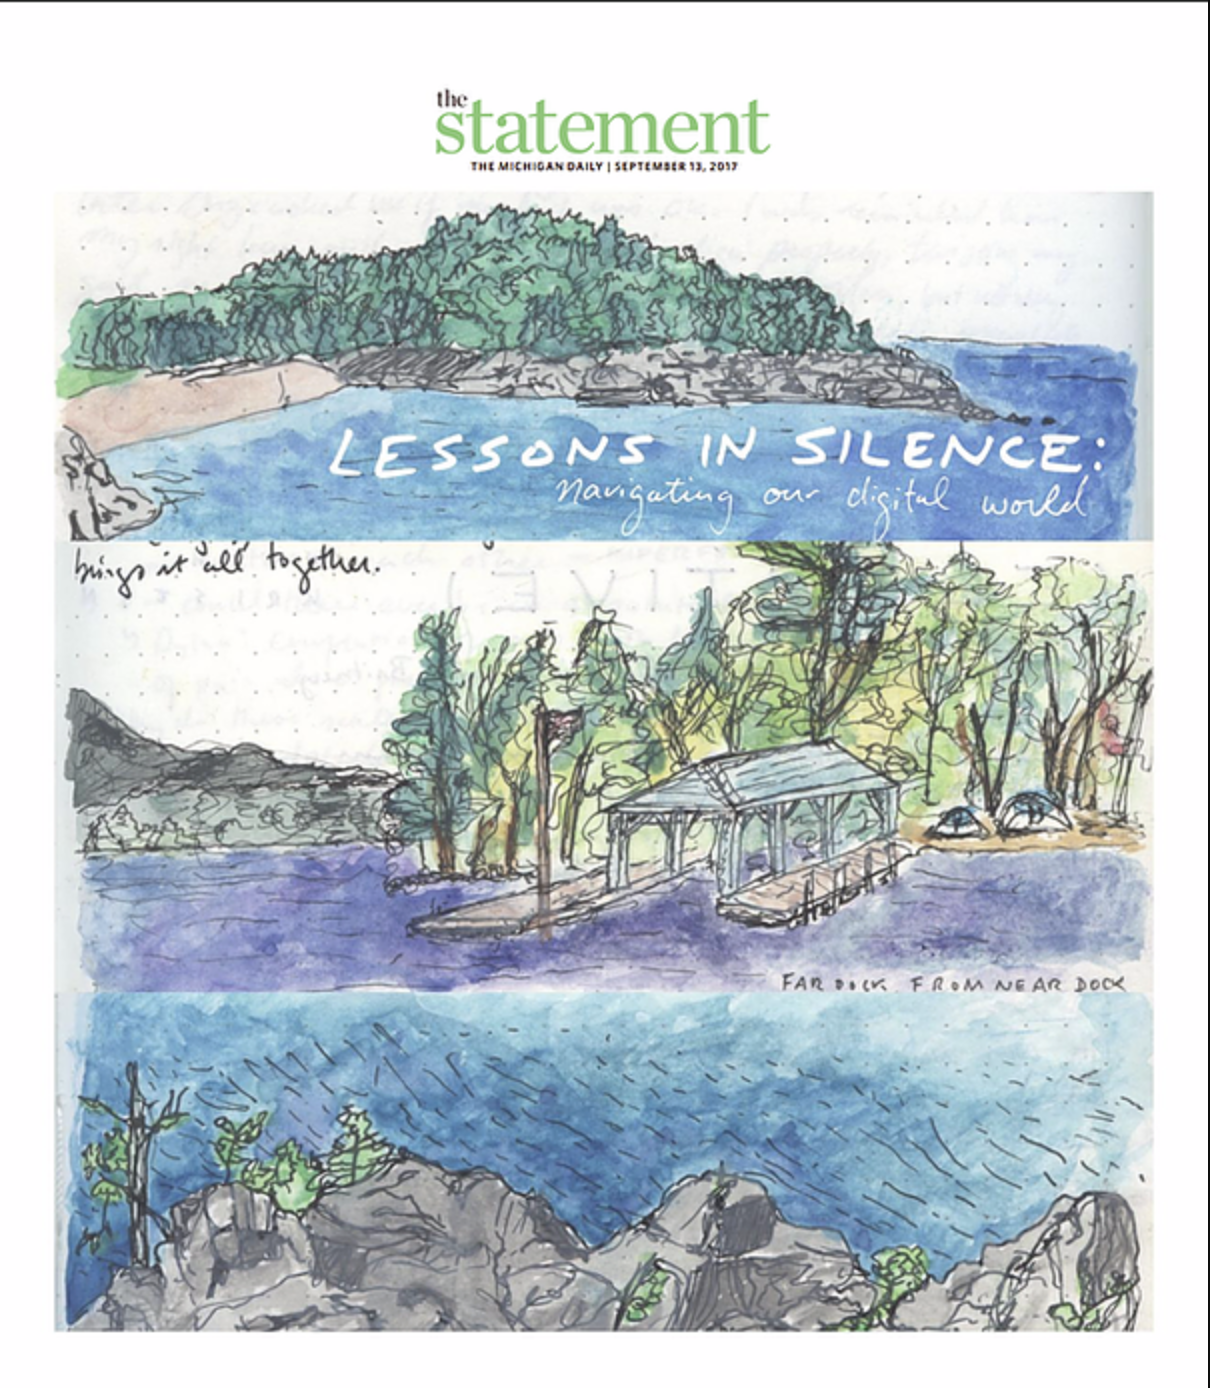 the
statement
THE MICHIGAN DAILY | SEPTEMBER 13, 2017
LESSONS IN SILENCE:
navigating our digital world
brings it all together.
FAR DOCK FROM NEAR DOCK